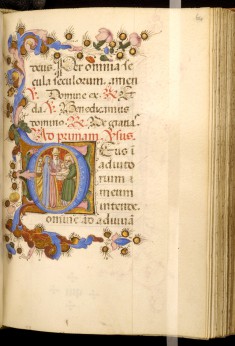 deus. Per omnia se
cula seculorum. amen
V. Domine ex. R. Et
da V. Benedicamus
domino. R. Deo gratias.
Ad primam. Vsus.
Deus i
adiuto
rium
meum
intende.
Domine ad adiuua